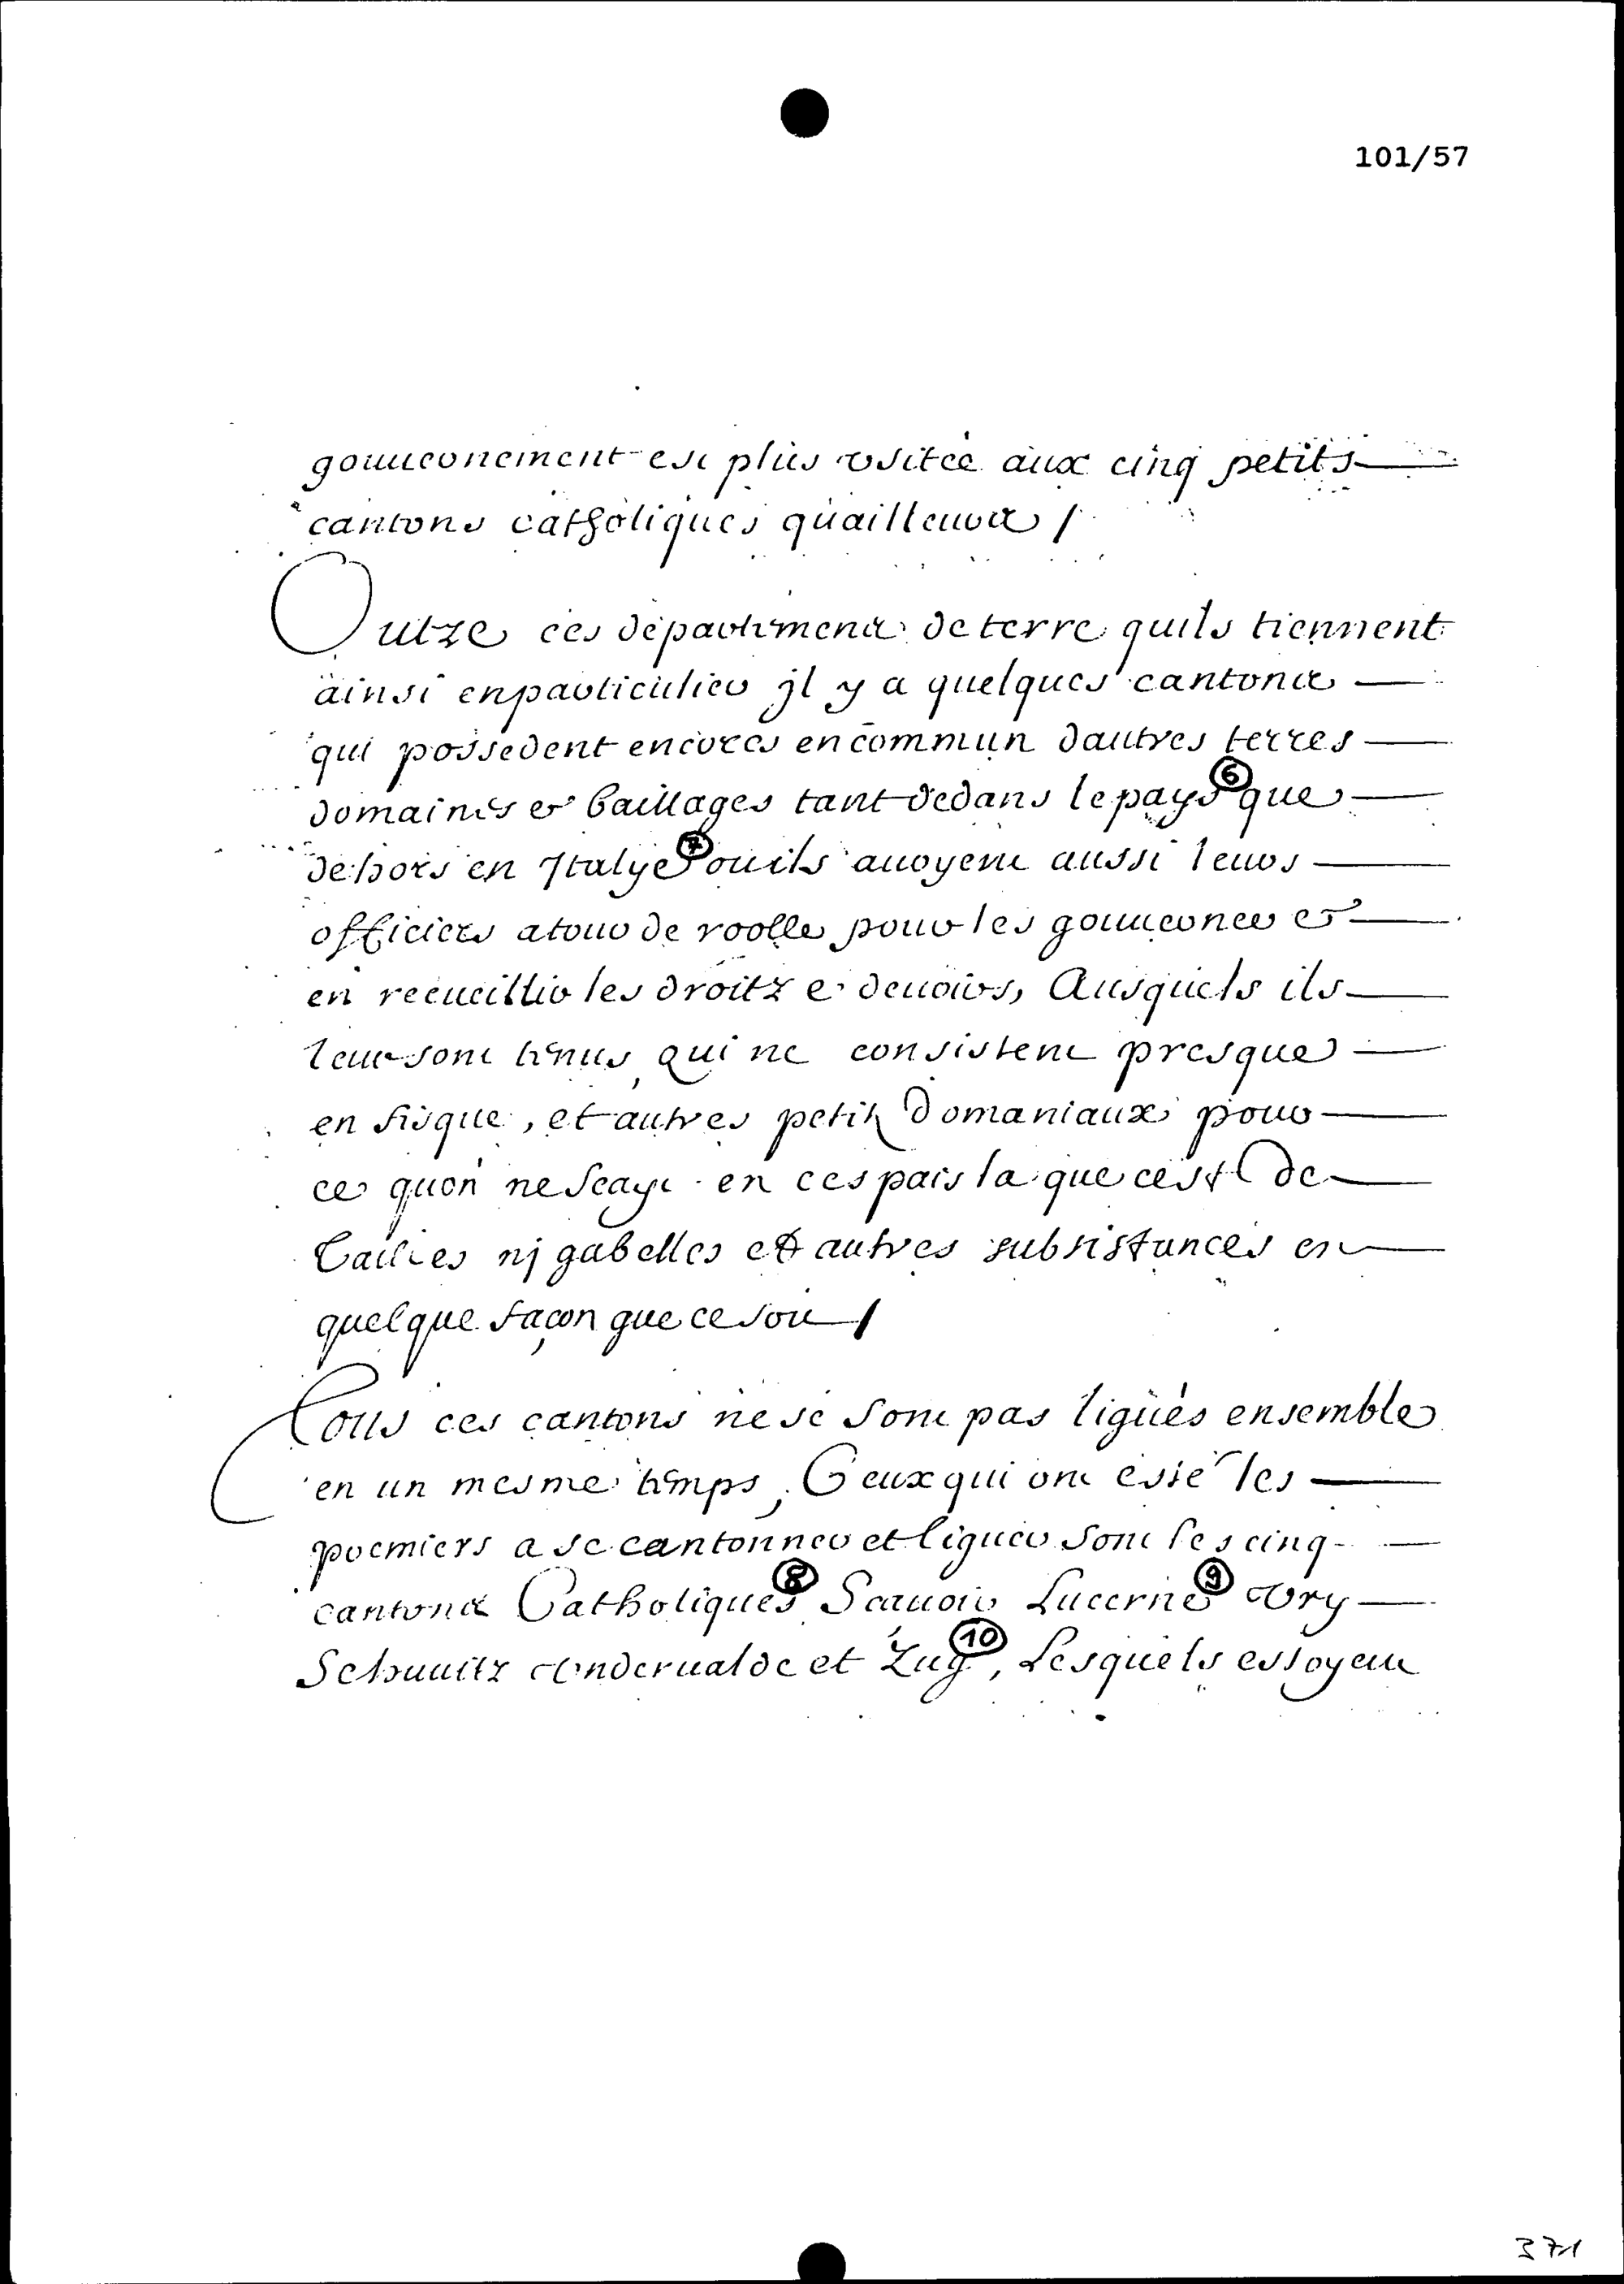 101/57
gouuernement est plus vsitée aux cinq petits
cantons catholiques quailleurs /
Outre ces departiments de terre quils tiennent
ainsi enparticulier jl y a quelques cantons
qui possedent encores encommun dautres terres
domaines et baillages tant dedans le pays ⑥ que
dehors en Jtalye ⑦ ouils auoyent aussi leurs
officiers atour de roolle pour les gouuerner et
en recueillir les droitz et deuoirs, Ausquels ils
leur sont tenus, qui ne consistent presque
en fisque, et autres petitz Domaniaux pour
ce quon nescayt en ces pais la que cest de
Tailles nj gabelles et autres subsistances en
quelque façon que ce soit /
Tous ces cantons ne se sont pas ligués ensemble
en un mesme temps, Ceux qui ont esté les
premiers a se cantonner et liguer sont les cinq
cantons Catholiques ⑧ Scauoir Lucerne ⑨ Vry
Schuuitz Vnderualde et Zug ⑩, Lesquels estoyent
371